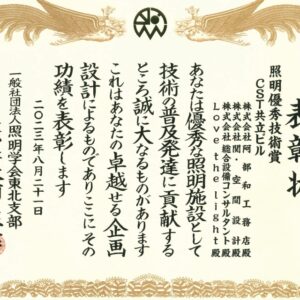 表彰状
照明優秀技術賞
CST共立ビル
株式会社阿部和工務店殿
株式会社関空間設計殿
株式会社総合設備コンサルタント殿
Love the light殿
あなたは優秀な照明施設として
技術の普及発達に貢献する
ところ誠に大なるものがあります
これはあなたの卓越せる企画
設計によるものでありここにその
功績を表彰します
二〇二三年八月二十一日
一般社団法人照明学会東北支部